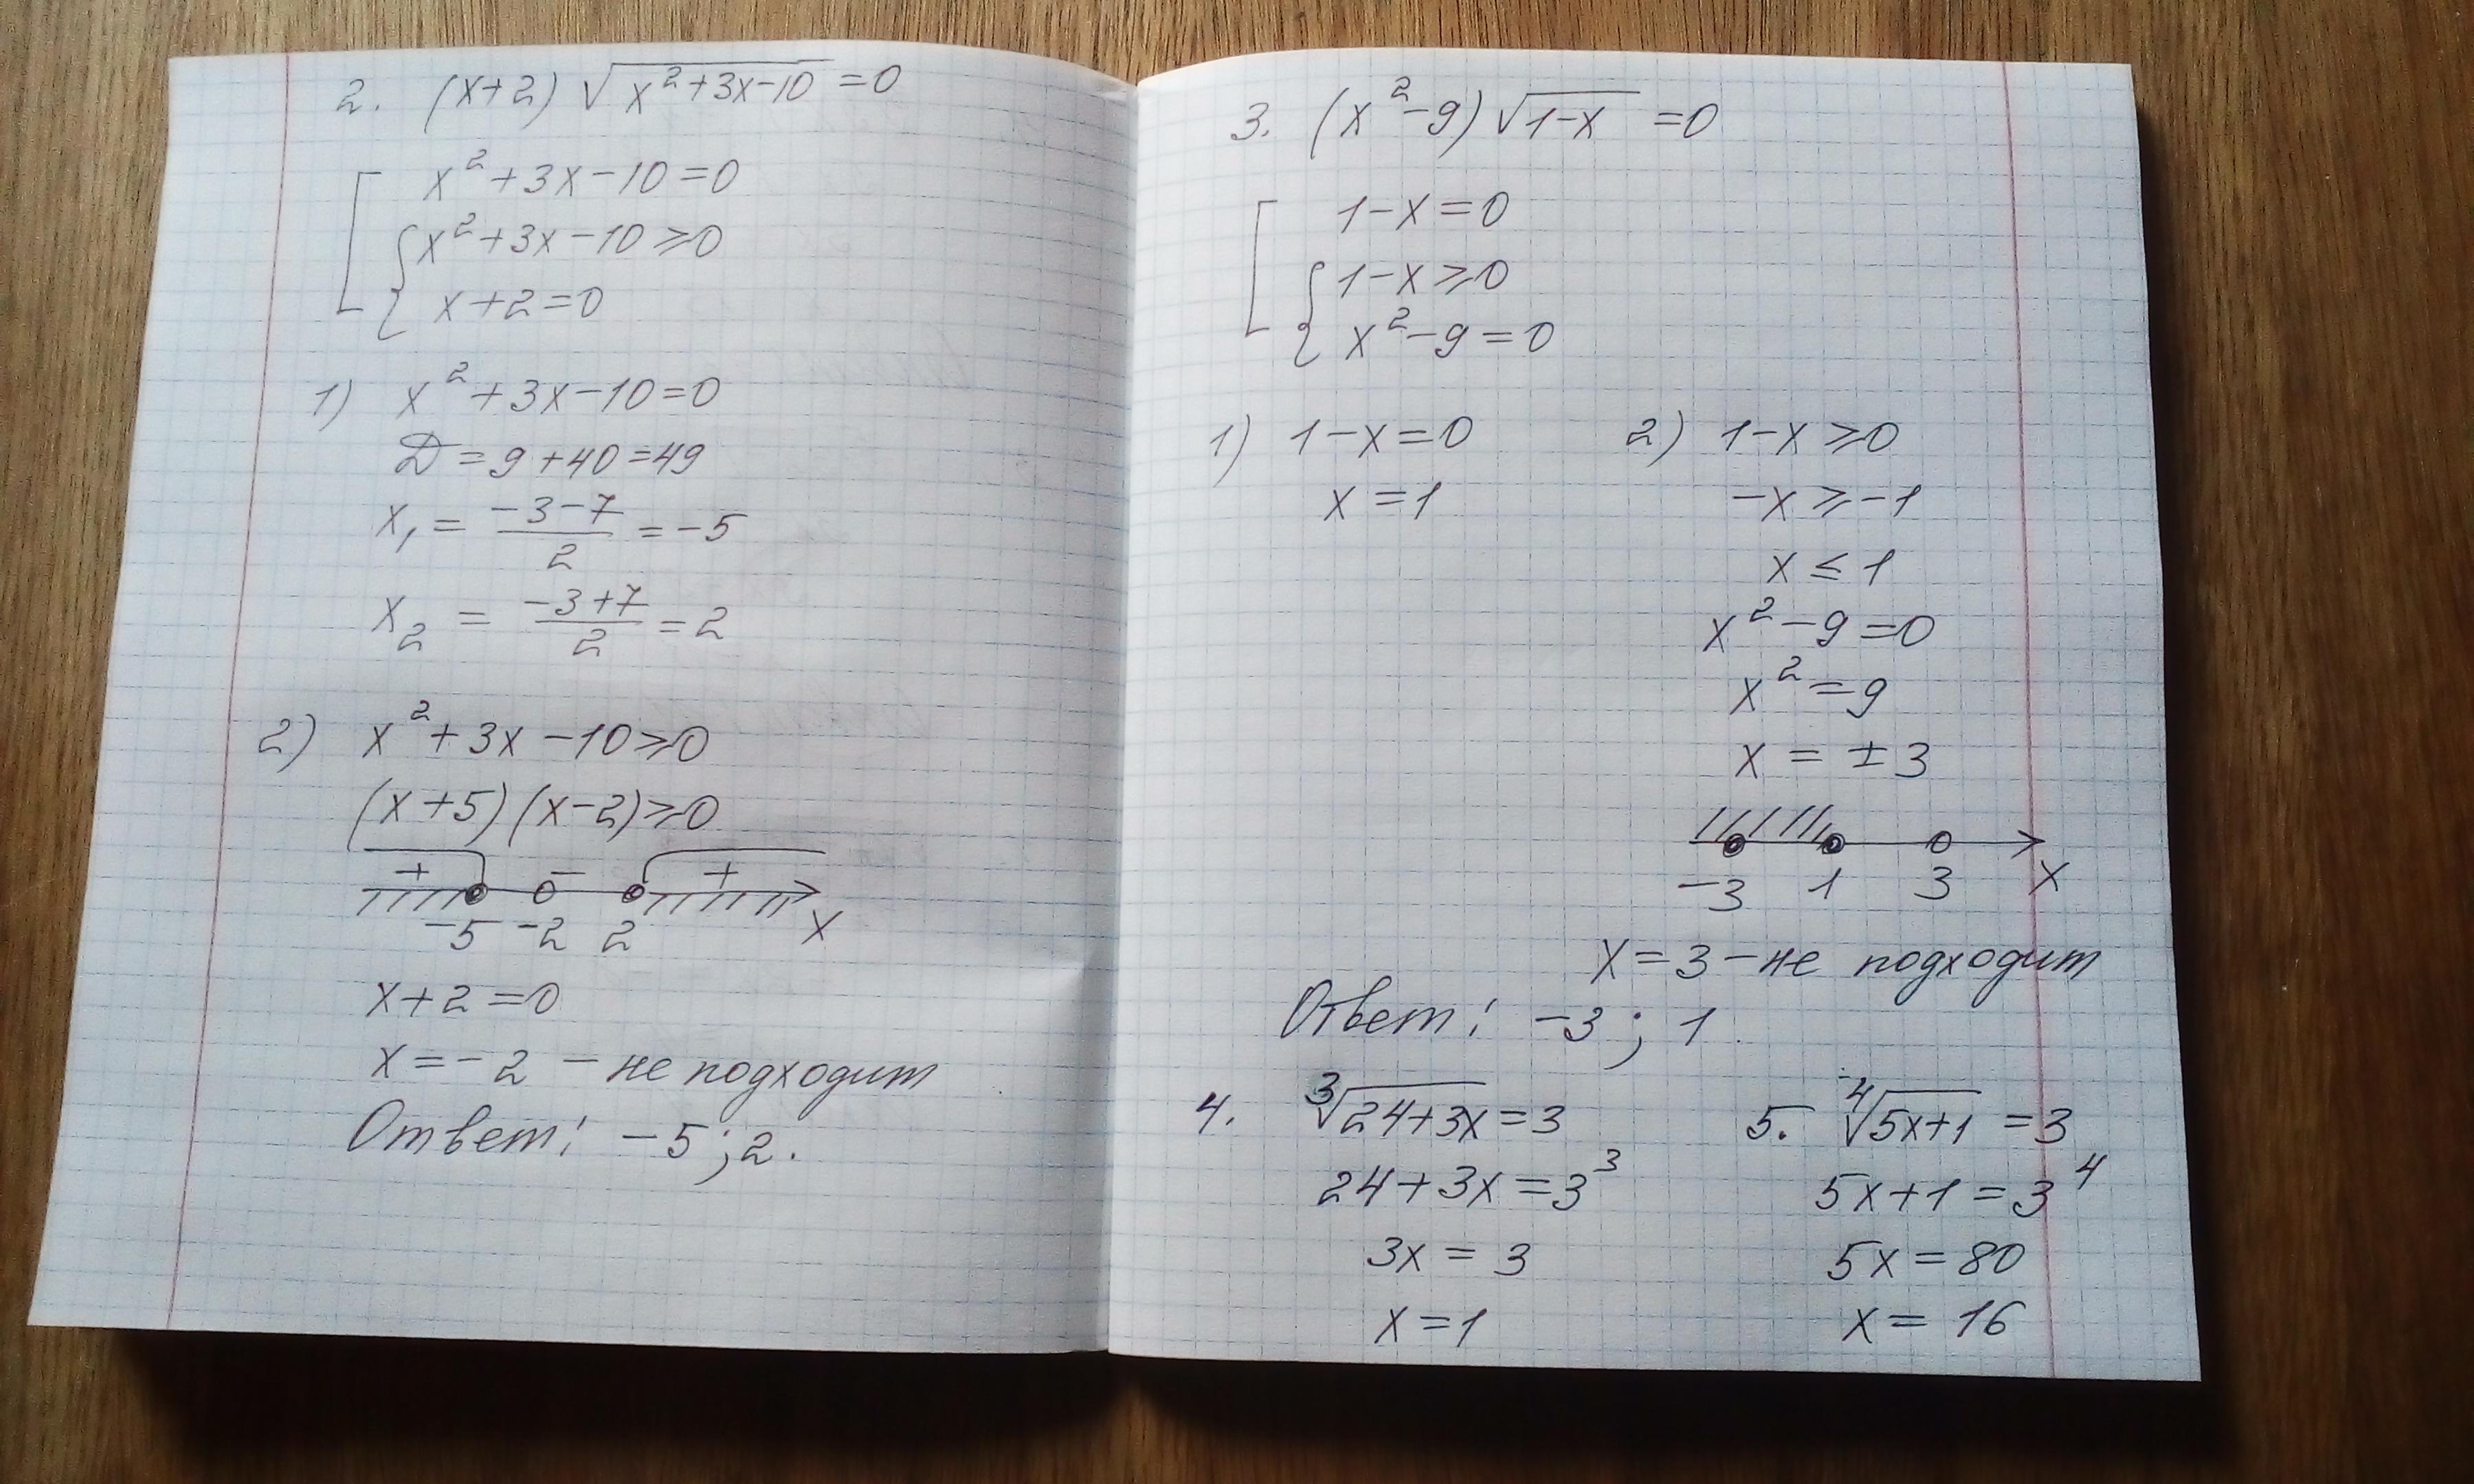 2. (x+2) √(x²+3x-10) = 0
x²+3x-10=0
x²+3x-10≥0
x+2=0
1) x²+3x-10=0
D=9+40=49
x₁ = (-3-7)/2 = -5
x₂ = (-3+7)/2 = 2
2) x²+3x-10≥0
(x+5)(x-2)≥0
+ - +
-5 -2 2 x
x+2=0
x=-2 - не подходит
Ответ: -5; 2.
3. (x²-9)√(1-x) = 0
1-x=0
1-x≥0
x²-9=0
1) 1-x=0
x=1
2) 1-x≥0
-x≥-1
x≤1
x²-9=0
x²=9
x = ±3
-3 1 3 x
x=3-не подходит
Ответ: -3; 1.
4. ∛(24+3x)=3
24+3x=3³
3x=3
x=1
5. ∜(5x+1)=3
5x+1=3⁴
5x=80
x=16